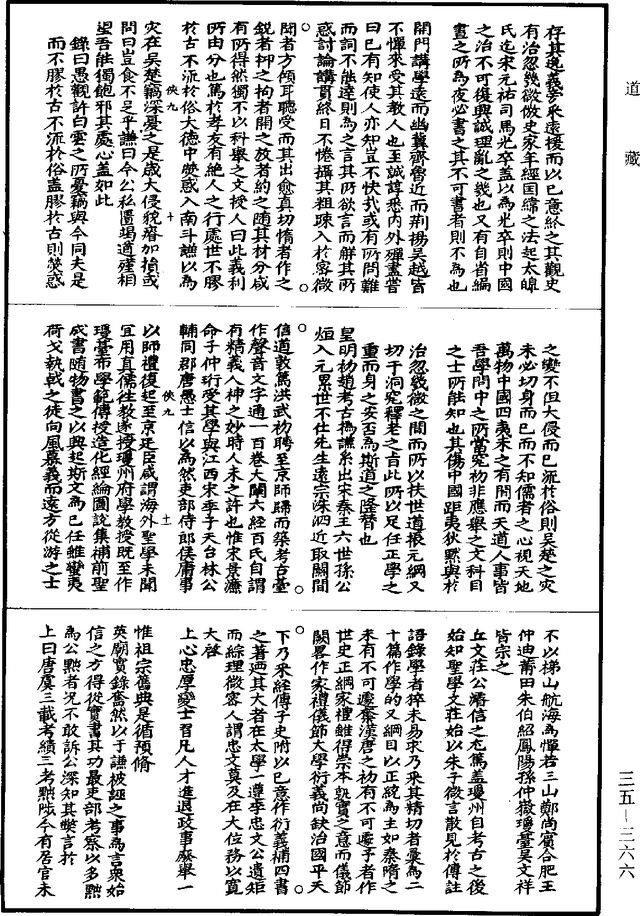 道藏
存其逸義夢奠遠援而以已意終之其觀史
有治忽幾微倣史家年經国緯之法起太皡
氏迄宋元祐司馬光卒盖以為光卒則中國
之治不可復興誠理亂之幾也又有自省編
晝之所為夜必書之其不可書者則不為也
開門講學遠而幽冀齊魯近而荊揚吳越皆
不憚來受其教人也至誠諄悉内外殫盡嘗
曰已有知使人亦知豈不快哉或有所問難
而詞不能達則為之言其所欲言而解其所
惑討論講貫終日不倦攝其粗疎入於密微
聞者方傾耳聽受而其出愈真切惰者作之
鋭者抑之拘者開之放者約之随其材分咸
有所得然獨不以科舉之文授人曰此義利
所由分也篤於孝友有絶人之行處世不膠
於古不流於俗大德中熒惑入南斗謙以為
俠九
十
灾在吳楚竊深憂之是歳大侵貌瘠加損或
問曰豈食不足乎謙曰今公私匱竭道殣相
望吾能獨飽邪其處心盖如此
錄曰愚觀許白雲之所憂竊與今同夫是
而不膠於古不流於俗盖膠於古則熒惑
之變不但大侵而已流於俗則吳楚之灾
未必切身而已而不知儒者之心視天地
萬物中國四夷未之有間而天道人事皆
吾學問中之所當究初非應舉之文科目
之士所能知也其傷中國距夷狄默與於
治忽幾微之間而所以扶世道振元綱又
切于洞究釋老之旨此所以足任正學之
重而身之安否為斯道之隆替也
皇明初趙考古撝謙系出宋秦王六世孫公
烜入元累世不仕先生遠宗洙泗近取關閩
信道敦篤洪武初聘至京師歸而築考古臺
作聲音文字通一百卷大闡六經百氏自謂
有精義入神之妙時人未之許也惟宋景濂
命子仲珩受其學與江西宋季子天台林公
輔同郡唐愚士信以為然吏部侍郎侯庸事
俠九
十一
以師禮復起至京廷臣咸謂海外聖學未聞
宜用真儒往教遂授瓊州府學教授既至作
瓊臺布學範傳授造化經綸圖說集補前聖
咸書随物書之以興起斯文為已任雖蠻夷
荷戈執戟之徒向風慕義而遠方從游之士
不以梯山航海為憚若三山鄭尚賓合肥王
仲迪莆田朱伯紹鳳陽孫仲嶽瓊臺吳文祥
皆宗之
丘文莊公濬信之尤篤盖瓊州自考古之後
始知聖學文莊始以朱子微言散見於傳註
語錄學者猝未易求乃采其精切者彚為二
十篇作學的又綱目以正統為主如秦隋之
末有不可遽奪漢唐之初有不可遽予者作
世史正綱家禮雖得崇本敦實之意而儀節
闕畧作家禮儀節大學衍義尚缺治國平天
下乃采經傳子史附以已意作衍義補四書
之著迺其大者在太學一遵李忠文公遺矩
而綜理微密人謂忠文莫及在大位務以寛
大啓
上心忠厚變士習凡人才進退政事廢舉一
惟祖宗舊典是循預脩
英廟實錄奮然以于謙被誣之事為言衆始
信之方得從實書其功最吏部考察以多黜
為公黜者况不敢訴公深知其弊言於
上曰唐虞三載考績三考黜陟今有居官未
三五－三六六